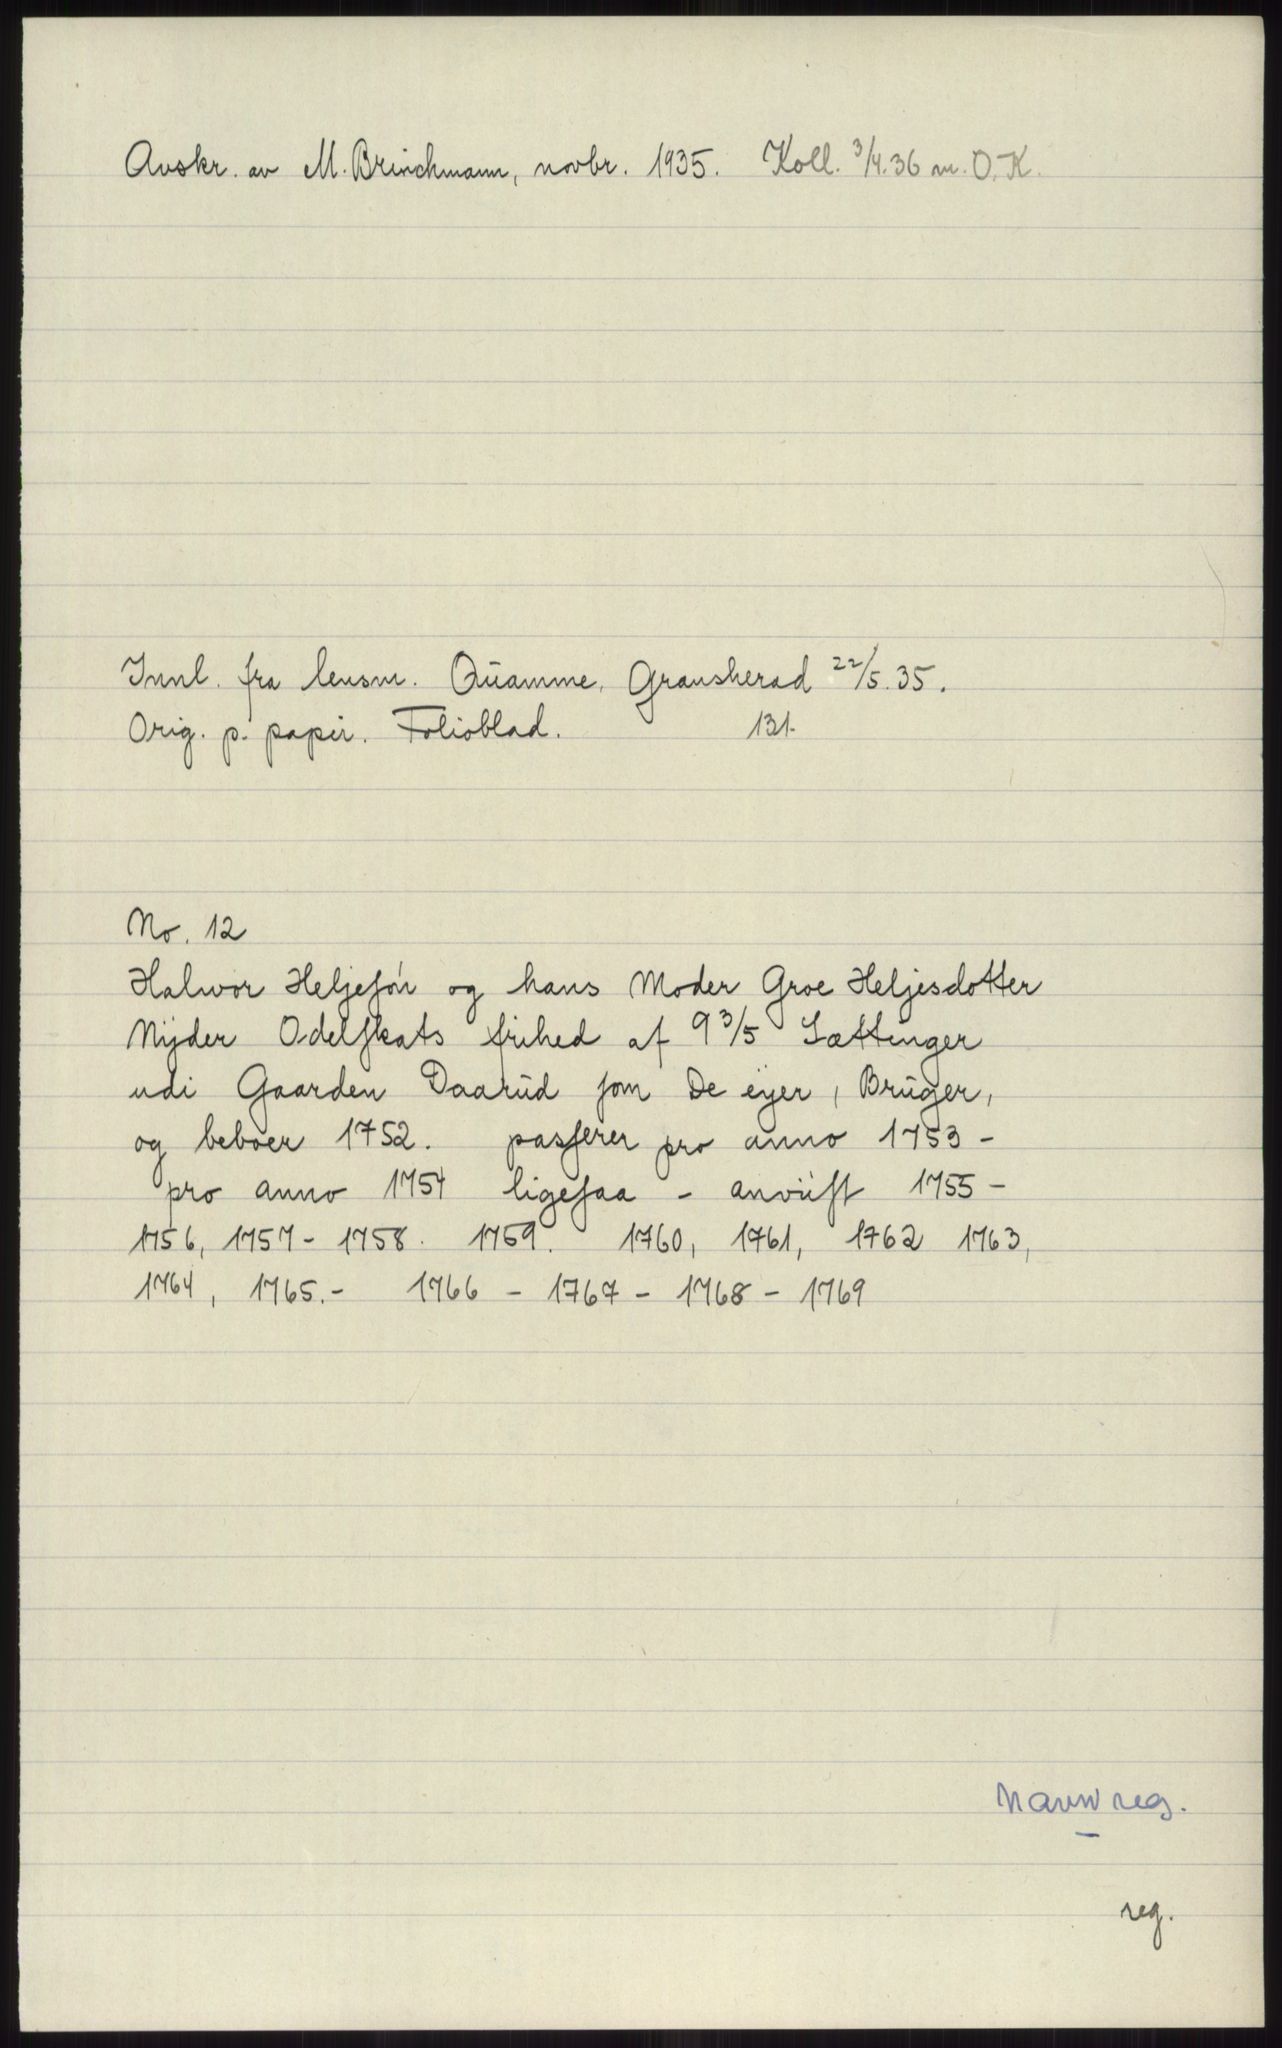 Avskr. av M. Brinchmann, novbr. 1935. Koll. 3/4.36 m. O.K.
Innl. fra lensm. Qŭamme, Gransherad 22/5.35.
Orig. p. papir. Folioblad. 131.
No. 12
Halvor Heljeſøn og hans Moder Groe Heljesdotter
Nÿder Odelſkats frihed af 9 3/5 Sættinger
udi Gaarden Daarŭd ſom De eÿer, Brŭger,
og beboer 1752. pasſerer pro anno 1753 -
pro anno 1754 ligeſaa - anviiſt 1755 -
1756, 1757 - 1758. 1759. 1760, 1761, 1762 1763,
1764, 1765. - 1766 - 1767 - 1768 - 1769
Navnreg.
reg.